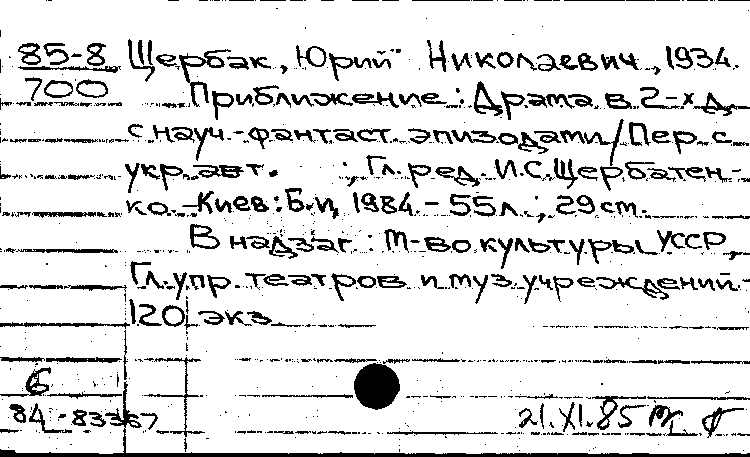 85-8 Щербак, Юрий Николаевич, 1934.
700 Приближение: Драма в 2-х д.
с науч.-фантаст. эпизодами/Пер. с
укр. авт. ; Гл. ред. И.С. Щербатен-
ко. - Киев: Б.и, 1984. - 55л.; 29 см.
В надзаг.: М-во культуры УССР,
Гл. упр. театров и муз. учреждений -
120 экз.
Б
84-83367
21.XI.85